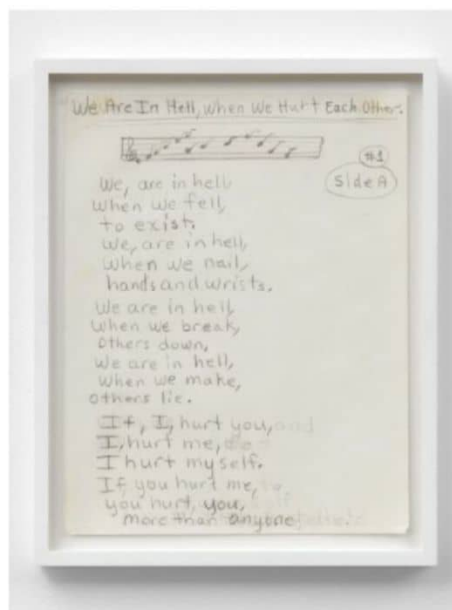 We Are In Hell, When We Hurt Each Other.
#1
Side A
We, are in hell,
when we fell,
to exist.
We, are in hell,
when we nail,
hands and wrists.
We are in hell,
when we break,
others down,
we are in hell,
when we make,
others lie.
If, I, hurt you,
I, hurt me,
I hurt myself.
If, you hurt me,
you hurt, you,
more than anyone